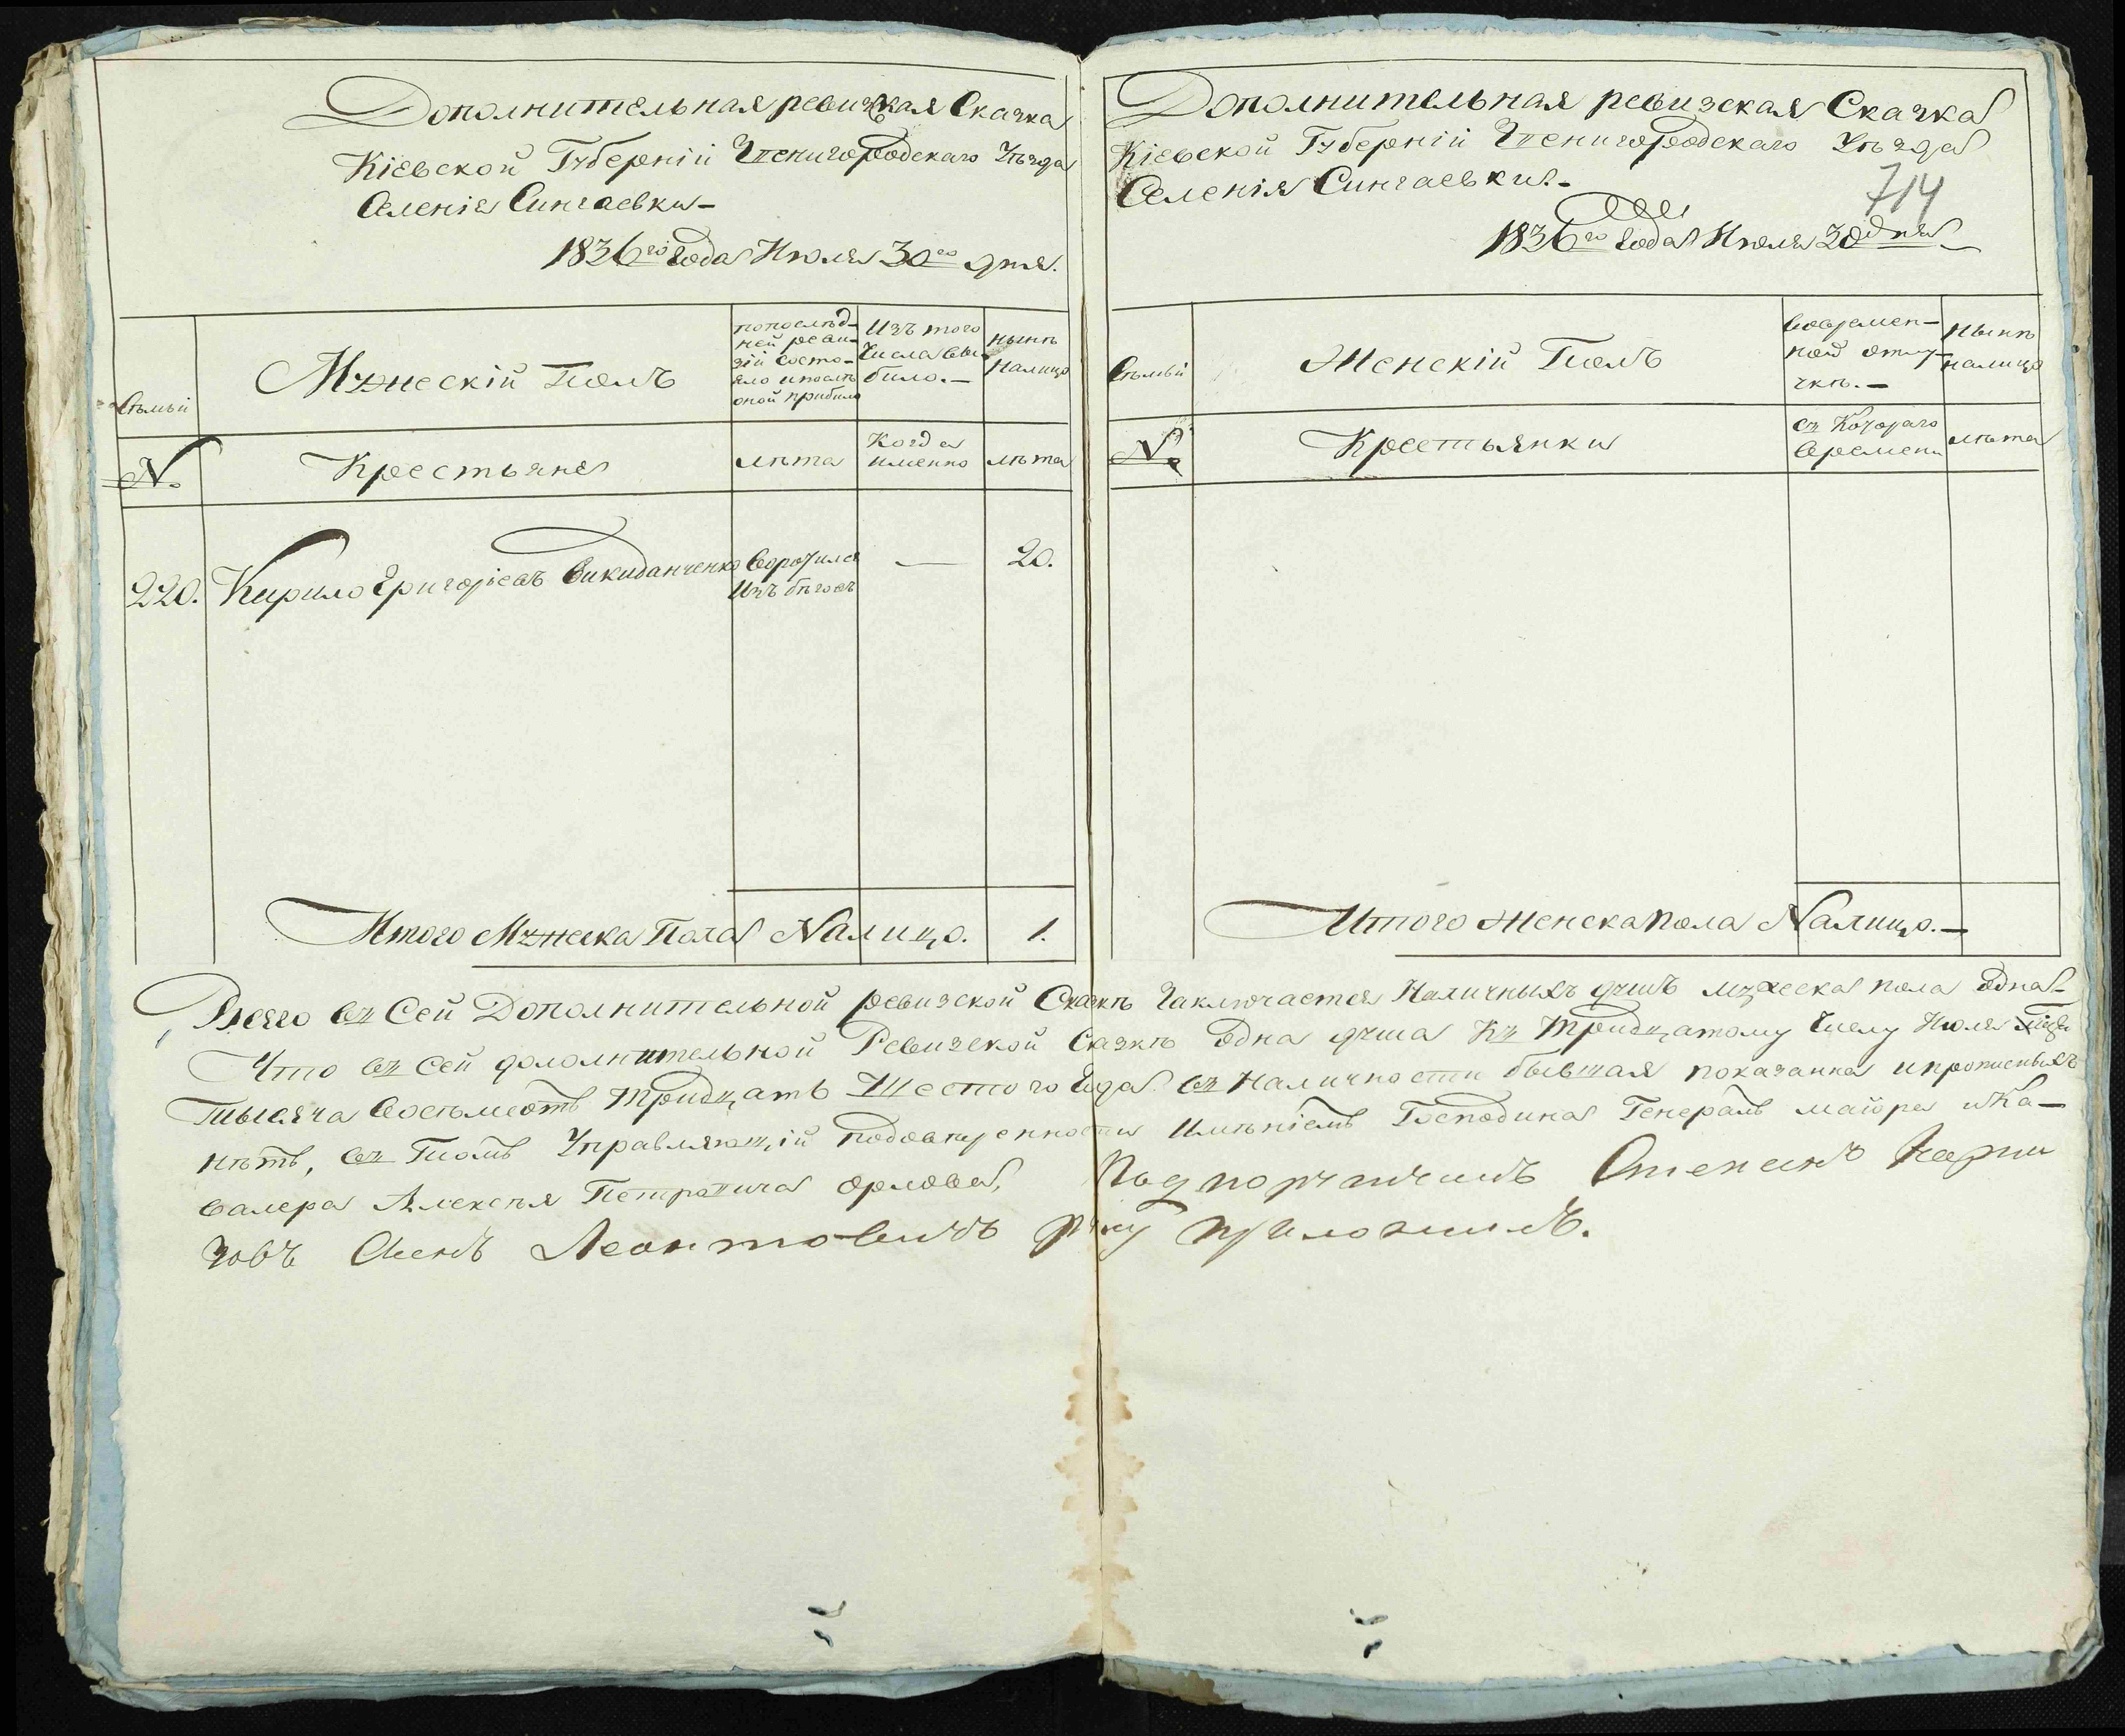 Дополнительная ревизкая Сказка
Кіевской Губерніи Звенигородскаго Уѣзда
Селенія Сингаевки –
1836го года Июля 30го дня.
Семьи
Мужескій Полъ
попослѣд-
ней реви-
зіи состо-
яло и послѣ
оной прибыло
Изъ того
числа вы-
было. –
нынѣ
налицо
№
Крестьяне
лѣта
Когда
именно
лѣта
220.
Кирило Григорьевъ Викиданченко
Воротился
Изъ бѣговъ
—
20.
Итого Мужеска Пола Налицо. 1.
Дополнительная ревизская Сказка
Кіевской Губерніи Звенигородскаго Уѣзда
Селенія Сингаевки. –
714
1836го года Июля 30 дня
Семьи
Женскій Полъ
Вовремен-
ной отлу-
чкѣ. –
нынѣ
налицо
№
Крестьянки
съ Котораго
времени
лѣта
Итого женска пола Налицо. —
Всего въ Сей Дополнительной ревизской Сказкѣ Заключается Наличныхъ душъ мужеска пола Одна –
Что въ сей дополнительной Ревизской Сказкѣ Одна душа Къ Тридцатому Числу Июля
тысяча Восемьсотъ тридцать Шестого Года въ Наличности бывшая показанна ипрописныхъ
нѣтъ, въ Томъ Управляющій подовѣренности Имѣніемъ Господина Генералъ маіора иКа –
валера Алексѣя Петровича Орлова, Подпоручикъ Степанъ Карпи
Леонтовичъ руку приложилъ.